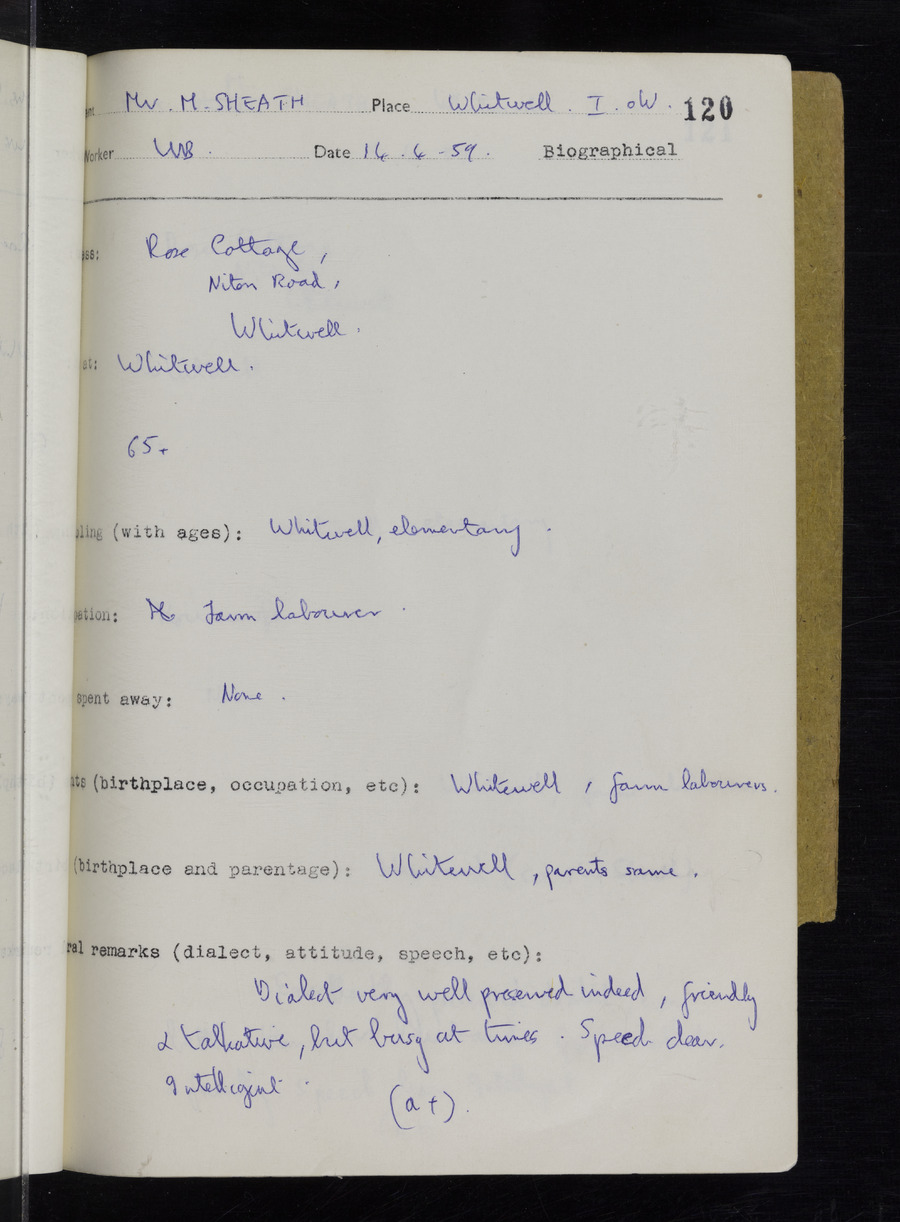 nt Mr. M. SHEATH Place Whitwell. I.oW. 120
Worker Date 14.4-59. Biographical
ess: Rose Cottage,
Niton Road,
Whitwell.
at: Whitwell.
65+
oling (with ages): Whitwell, elementary.
pation: farm labourer.
spent away: None.
nts (birthplace, occupation, etc): Whitewell, farm labourers.
(birthplace and parentage): Whitewell, parents same.
ral remarks (dialect, attitude, speech, etc):
Dialect very well preserved indeed, friendly
& talkative, but busy at times. Speech clear.
Intelligent.
(a+).